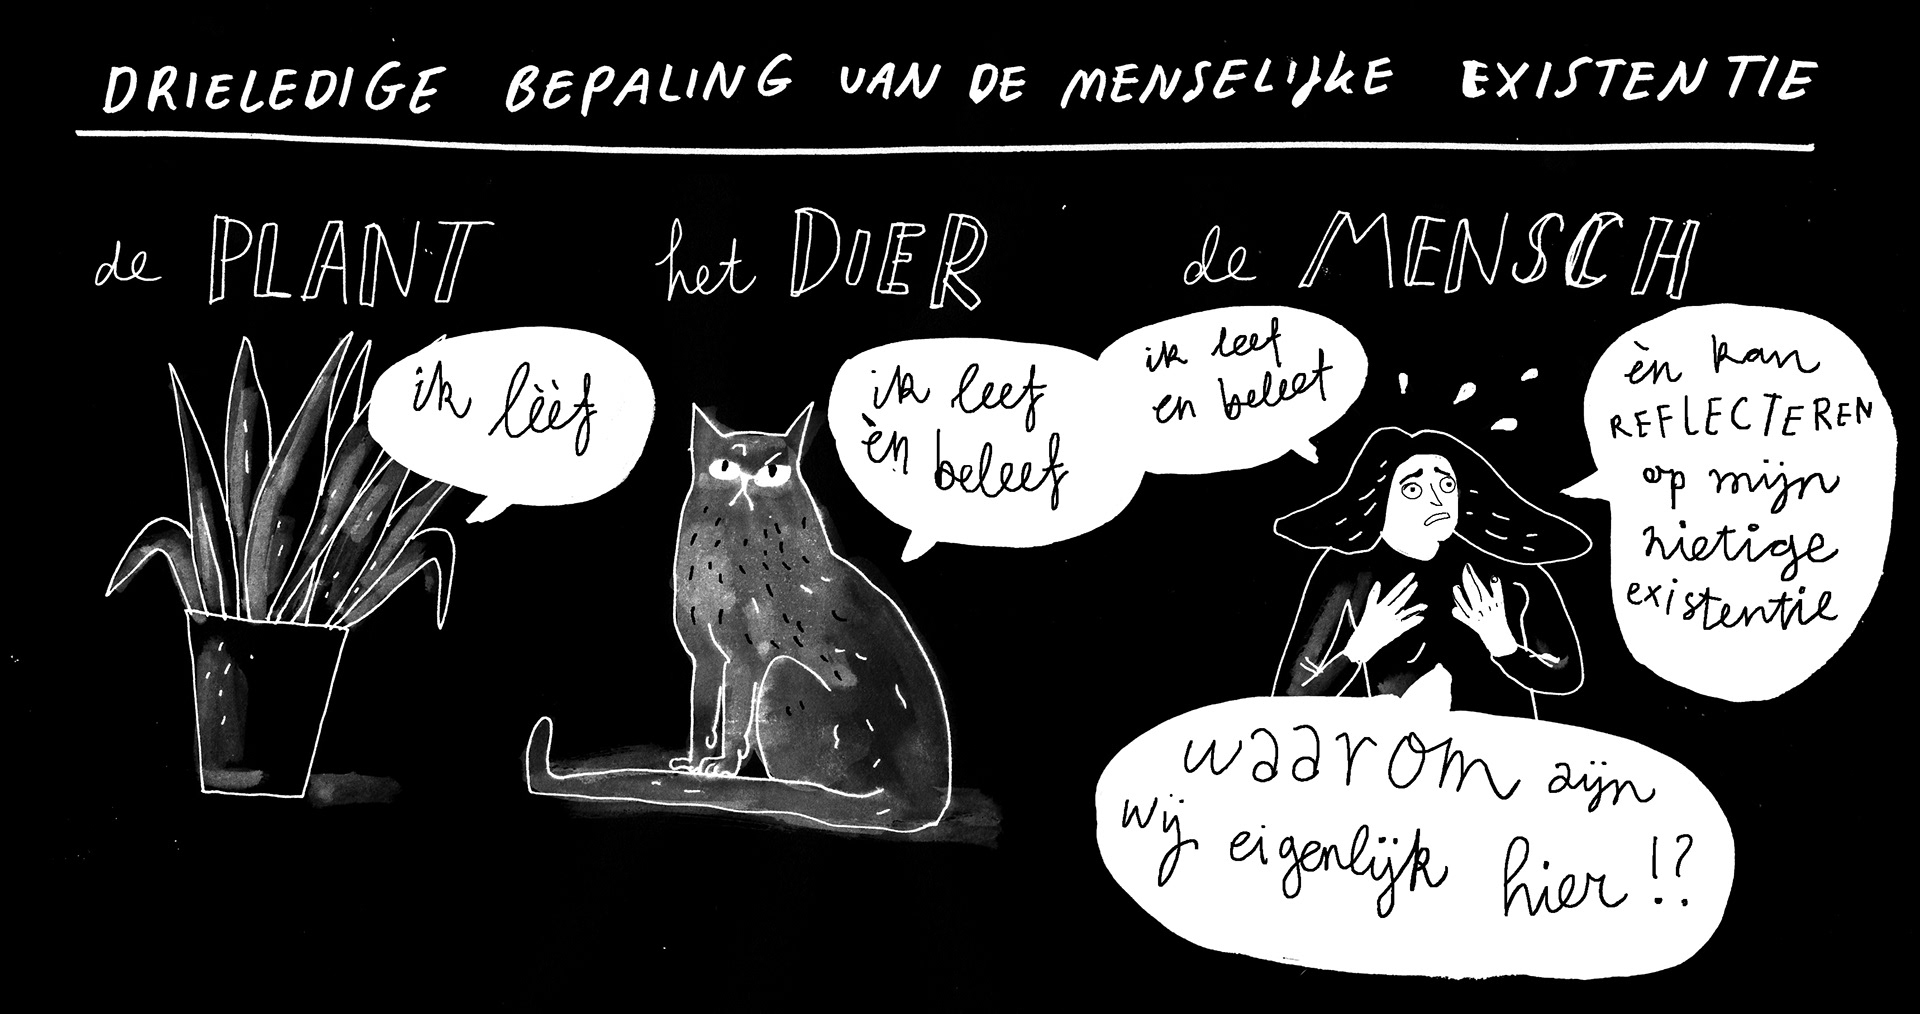 DRIELEDIGE BEPALING VAN DE MENSELIJKE EXISTENTIE
de PLANT
ik lèèf
het DIER
ik leef
èn beleef
de MENSCH
ik leef
en beleef
èn kan
REFLECTEREN
op mijn
nietige
existentie
waarom zijn
wij eigenlijk hier!?